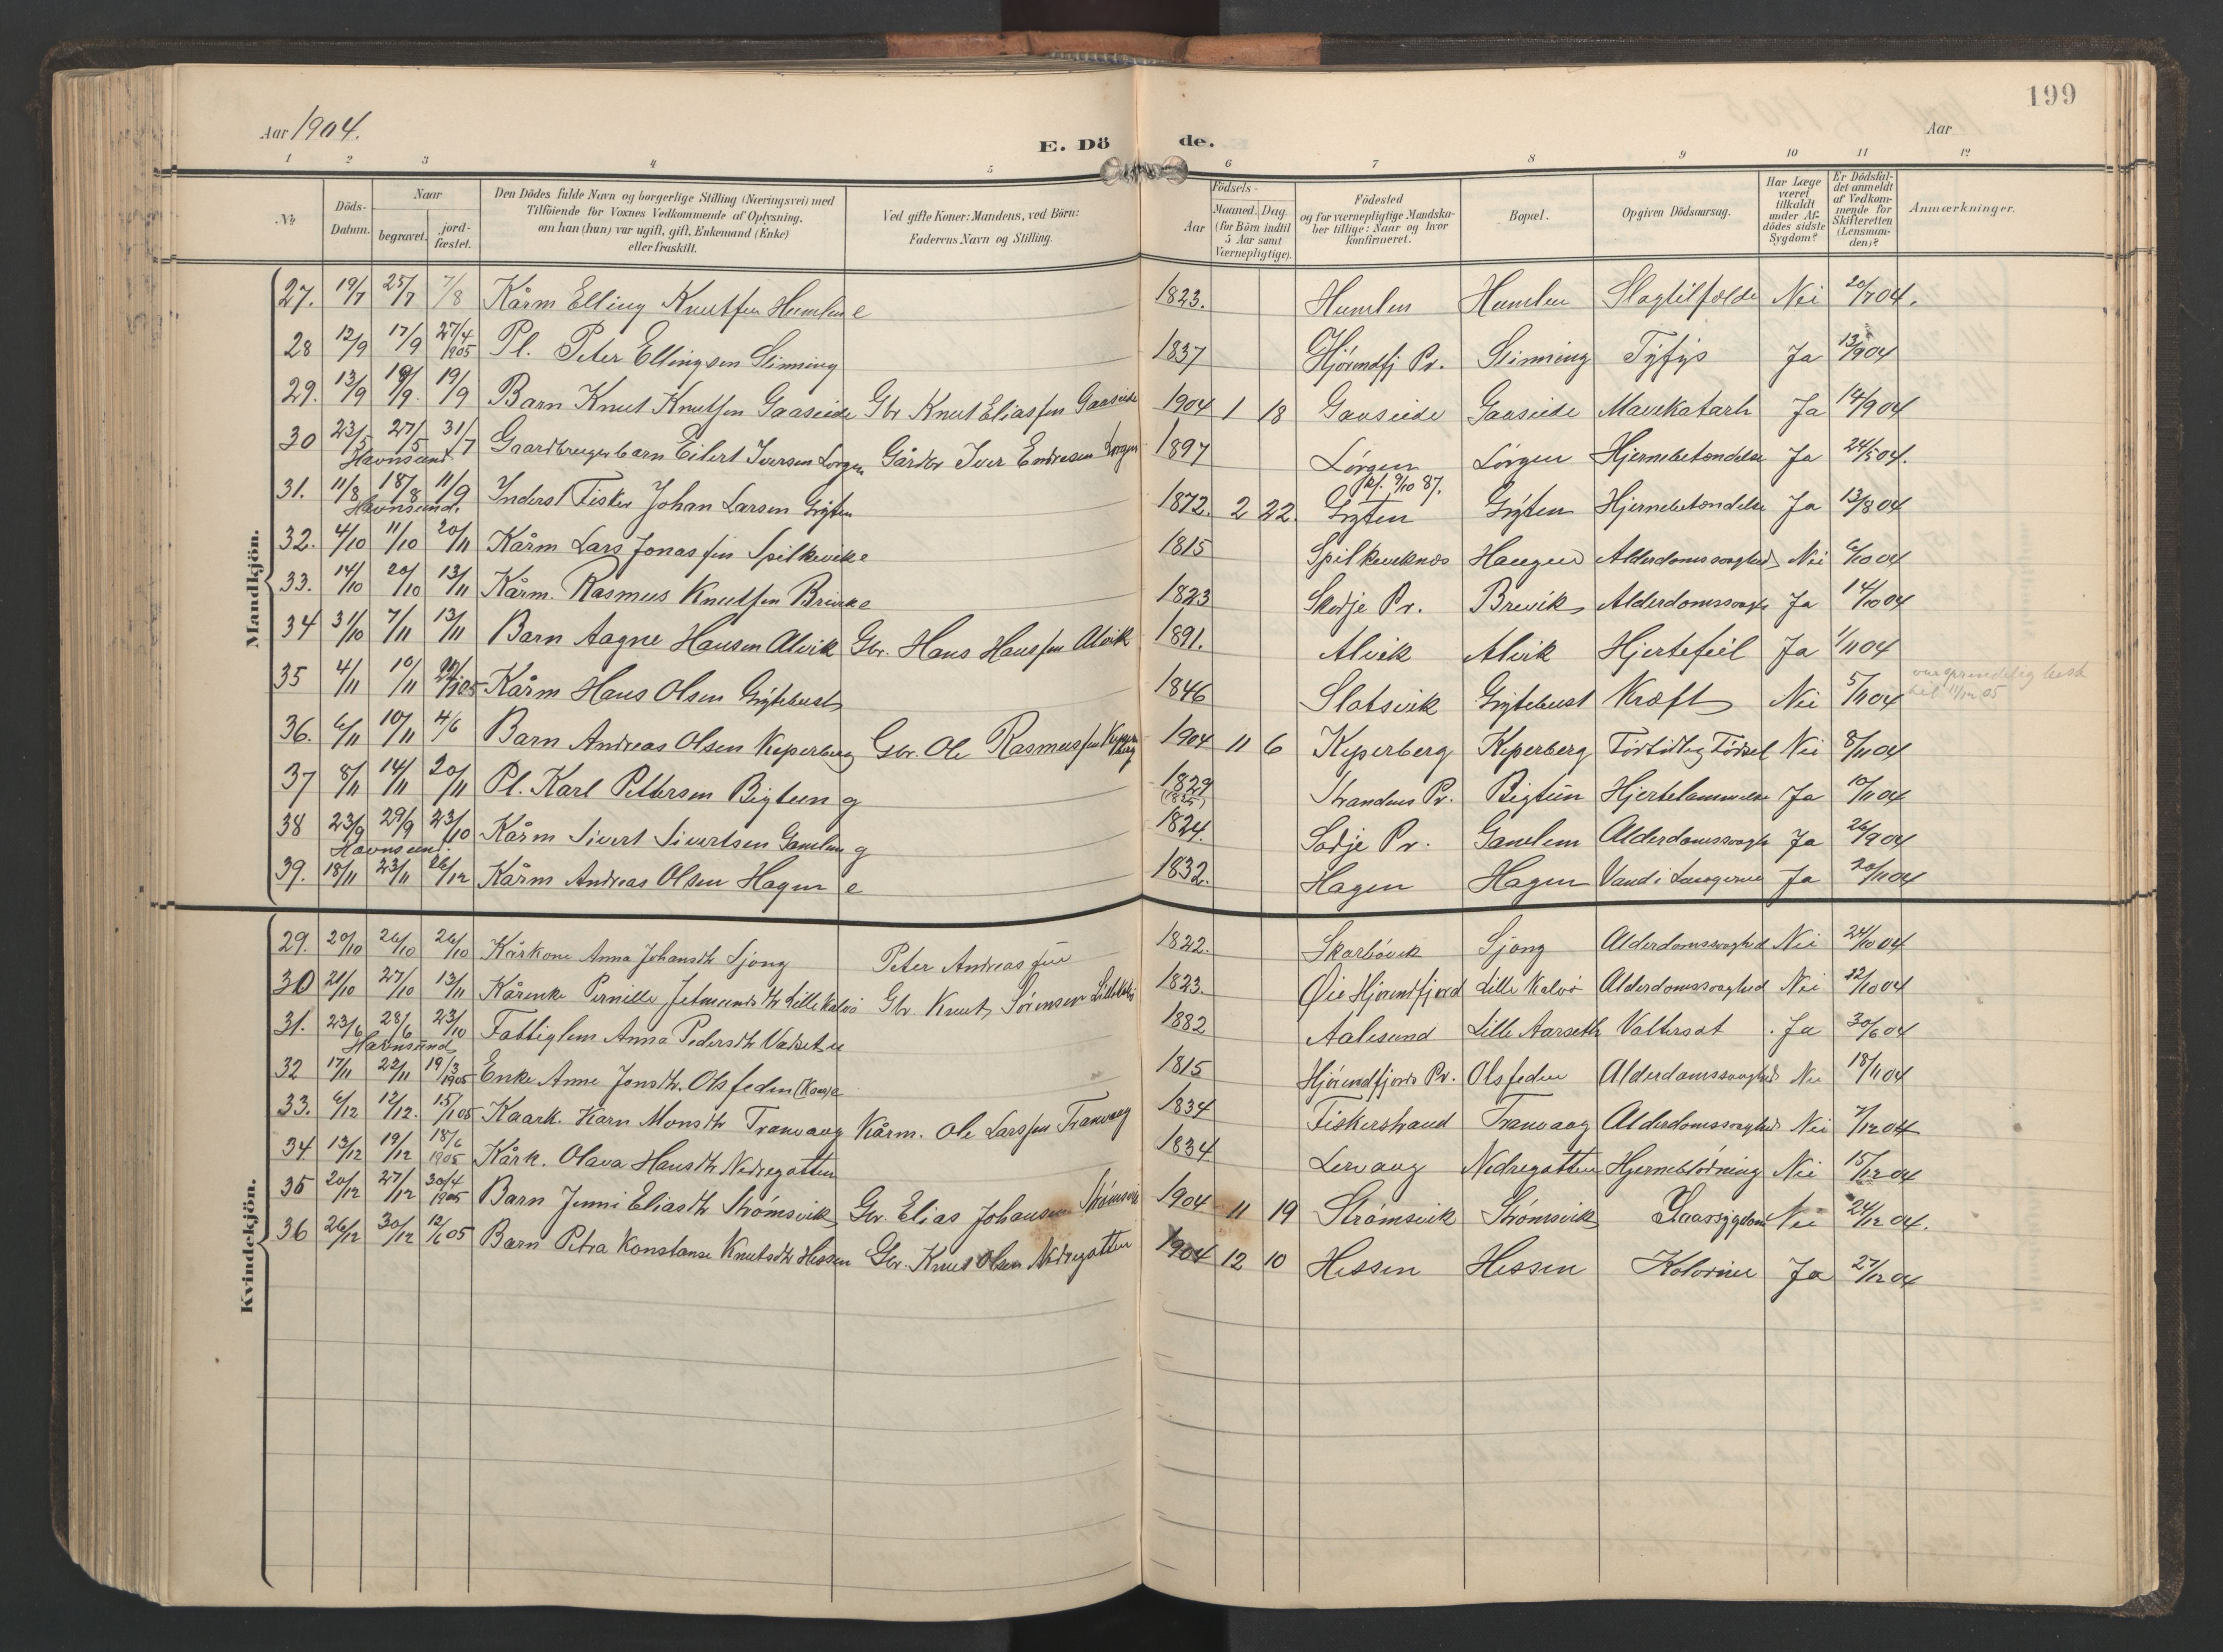 199
Aar 1904.
E. Dö de.
Aar
1 2 3 4 5 6 7 8 9 10 11 12
No
Döds-Datum.
Naar
begravet. jord-fæstet.
Den Dödes fulde Navn og borgerlige Stilling (Næringsvei) med
Tilföiende for Voxnes Vedkommende af Oplysning.
om han (hun) var ugift, gift, Enkemand (Enke)
eller fraskilt.
Ved gifte Koner: Mandens, ved Börn:
Faderens Navn og Stilling.
Födsels-
Aar
Maaned. Dag.
(for Börn indtil
5 Aar samt
Værnepligtige).
Födested
og for værnepligtige Mandska-
ber tillige: Naar og hvor
konfirmeret.
Bopæl.
Opgiven Dödsaarsag.
Har Læge
været
tilkaldt
under Af-
dödes sidste
Sygdom?
Er Dödsfal-
det anmeldt
af Vedkom-
mende for
Skifteretten
(Lensman-
den)?
Anmærkninger.
Mandkjön.
27. 19/7 25/7 7/8 Kårm Elling Knutsen Humlen e 1823. Humlen Humlen Slagtilfælde Nei 20/7 04.
28 12/9 17/9 27/4 1905 Pl. Peter Ellingsen Slinning 1837 Hjörundfj Pr. Slinning Tyfys Ja 13/9 04
29. 13/9 19/9 19/9 Barn Knut Knutsen Gaaseide Gbr Knut Eliassen Gaaseide 1904 1 18 Gaaseide Gaaseide Mavekatarh Ja 14/9 04
30 23/5 27/5 31/7 Gaardbrugerbarn Eilert Iversen Lorgen Gårdbr Iver Endresen Lorgen 1897 Lörgen Lörgen Hjernebetændelse Ja 24/5 04.
Havnsund
31. 11/8 18/8 11/9 Inderst Fisker Johan Larsen Gryten 1872. 2 22. Kf. 9/10 87. Gryten Gryten Hjernebetændelse Ja 13/8 04
Havnsund.
32. 4/10 11/10 20/11 Kårm Lars Jonassen Spilkevik e 1815 Spilkeviknes Haugen Alderdomssvaghed Nei 6/10 04
33. 14/10 20/10 13/11 Kårm. Rasmus Knutsen Brevik e 1823 Skodje Pr. Brevik Alderdomssvagh Ja 14/10 04
34 31/10 7/11 13/11 Barn Aagne Hansen Alvik Gbr. Hans Hanssen Alvik 1891. Alvik Alvik Hjertefeil Ja 1/11 04
35 4/11 10/11 Kårm Hans Olsen Grytebust 1846 Slotsvik Grytebust Kræft Nei 5/11 04
36. 6/11 10/11 4/6 Barn Andreas Olsen Keperberg Gbr. Ole Rasmussen Keperberg 1904 11 6 Keperberg Keperberg Förtidlig Födsel Nei 8/11 04
37 8/11 14/11 20/11 Pl. Karl Pettersen Bigtun g 1829 (1825) Strandens Pr. Bigtun Hjertelammelse Ja 10/11 04
38 23/9 29/9 23/10 Kårm Sivert Sivertsen Gamlem g 1824. Sodje Pr. Gamlem Alderdomssvagh Ja 26/9 04
Havnsund.
39. 18/11 23/11 26/12 Kårm Andreas Olsen Hagen e 1832. Hagen Hagen Vand i Lungerne Ja 20/11 04
Kvindekjön.
29. 20/10 26/10 26/10 Kårkone Anna Johansdtr Sjong Peter Andreassen 1822. Skarbövik Sjong Alderdomssvaghed Nei 24/10 04
30 21/10 27/10 13/11 Kårenke Pernille Jetmundsdtr Lille Kalvö Gbr. Knut Sörensen Lille Kalvö 1823. Öie Hjörundfjord Lille Kalvö Alderdomssvaghed Nei 22/10 04
31. 23/6 28/6 23/10 Fattiglem Anna Pedersdtr Vadset u 1882 Aalesund Lille Aarseth Vattersot Ja 30/6 04
Havnsund
32 17/11 22/11 19/3 1905 Enke Anne Jonsdtr. Olsfeden e 1815 Hjörundfjords Pr. Olsfeden Alderdomssvaghed Nei 18/11 04
33. 6/12 12/12. 15/1 05 Kaark. Karn Monsdtr Tranvaag Kårm. Ole Larssen Tranvaag 1834 Fiskerstrand Tranvaag Alderdomssvaghed Nei 7/12 04
34. 13/12 19/12 18/6 1905 Kårk. Olava Hansdtr Nedregotten 1834 Lervaag Nedregotten Hjerneblödning Nei 15/12 04
35 20/12 27/12 30/4 1905 Barn Jenni Eliasdtr Strömsvik Gbr. Elias Johansen Strömsvik 1904 11 19 Strömsvik Strömsvik Nei 24/12 04.
36 26/12 30/12 12/6 05 Barn Petra Konstanse Knutsdtr Hessen Gbr. Knut Olsen Nedregotten 1904 12 10 Hessen Hessen Kolorine Ja 27/12 04